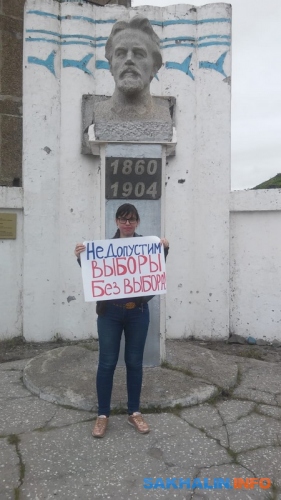 1860
1904
Не Допустим
ВЫБОРЫ
Без ВЫБОРА!
SAKHALIN.INFO
SAKHALININFO